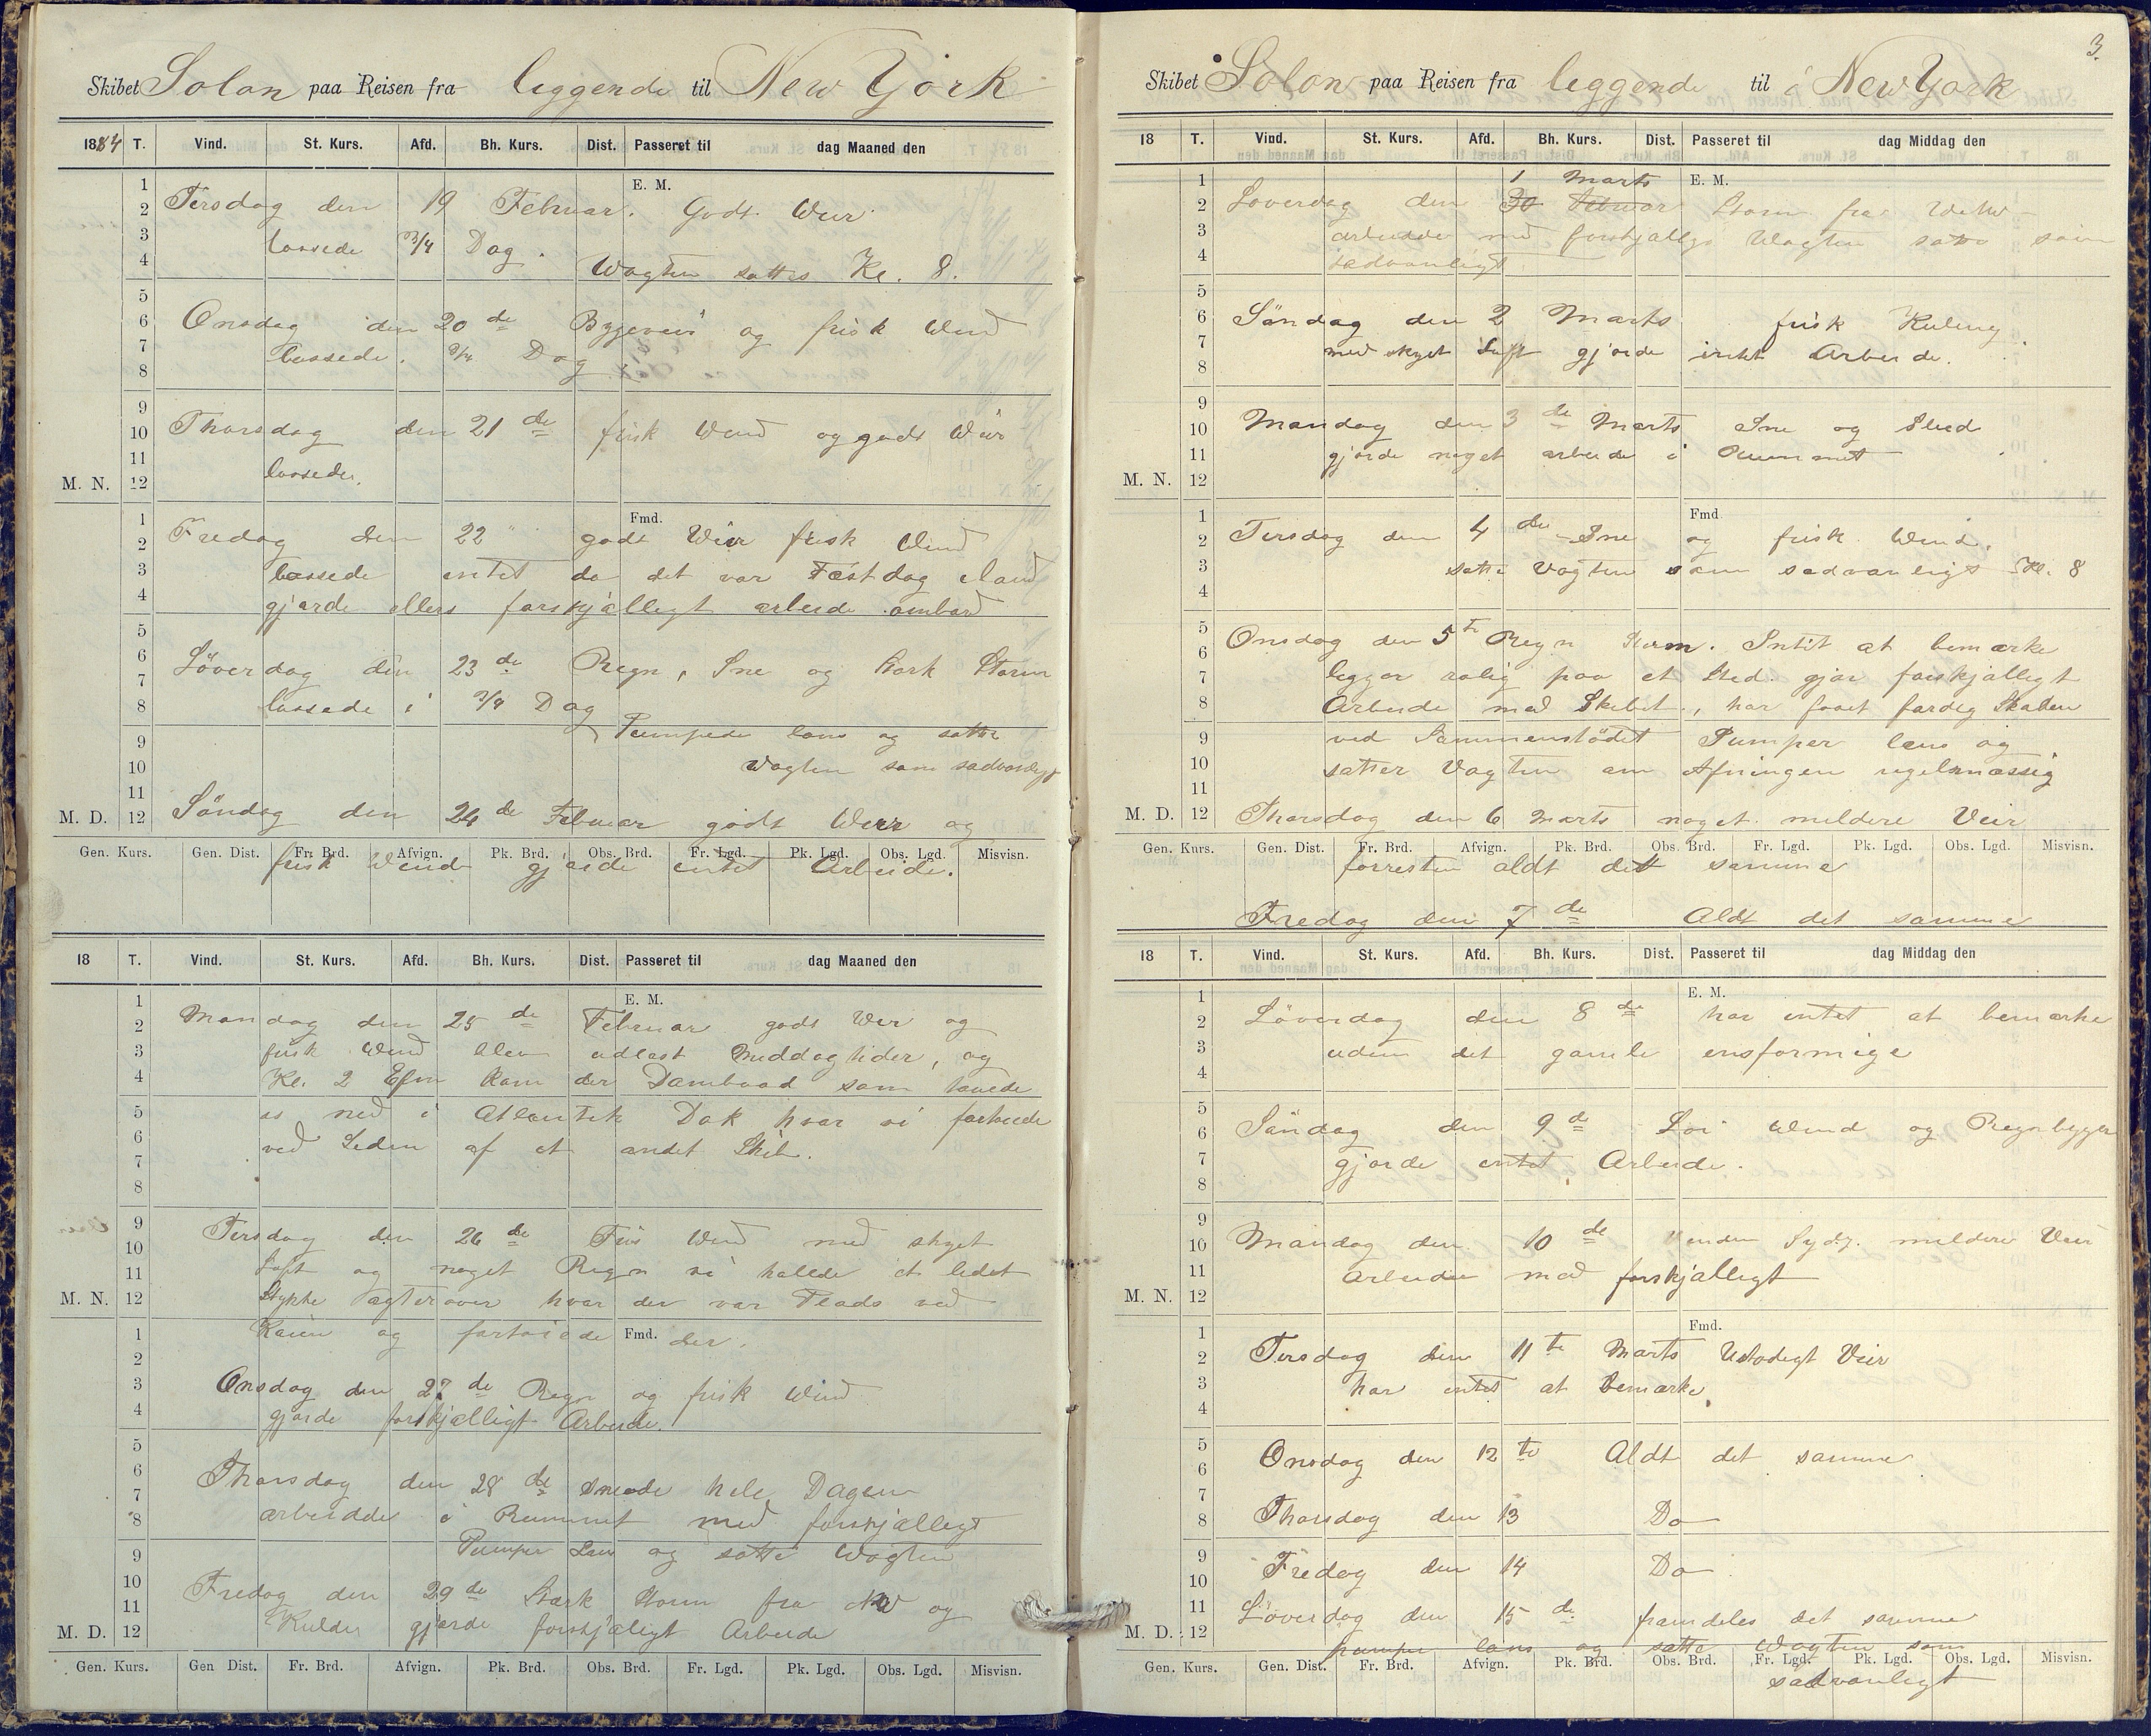 Skibet Solon paa Reisen fra leggende til New York
1884 T. Vind. St. Kurs. Afd. Bh. Kurs. Dist. Passeret til dag Maaned den
E. M.
Tirsdag den 19 Februar. Godt Weir
lossede 3/4 Dag.
Wagten sattes Kl. 8.
Onsdag den 20de Bygeveir og frisk Wind
lossede. 3/4 Dag
Thorsdag den 21de frisk Wind og godt Weir
lossede.
M. N.
Fmd.
Fredag den 22 " godt Weir frisk Wind
lossede intet da det var Fæstdag iland
gjorde ellers forskjælligt arbeide ombord
Löverdag den 23de Regn, Sne og stærk Storm
lossede i 3/4 Dag
Pumpede læns og satte
Wagten som sædvanligt
M. D. Söndag den 24de Februar godt Weir og
Gen. Kurs. Gen. Dist. Fr. Brd. Afvign. Pk. Brd. Obs. Brd. Fr. Lgd. Pk. Lgd. Obs. Lgd. Misvisn.
frisk Wind gjorde intet Arbeide.
18 T. Vind. St. Kurs. Afd. Bh. Kurs. Dist. Passeret til dag Maaned den
E. M.
Mandag den 25de Februar godt Weir og
frisk Wind blev udlost Middagtider, og
Kl. 2 Efm kom der Dambaad som touede
os ned i Atlantik Dok hvor vi fortoiede
ved Siden af et andet Skib.
Tirsdag den 26de Friis Wind med skyet
Luft og noget Regn vi halede et lidet
M. N. Stykke agterover hvor der var Plads ved
Kaien og fortoiede der.
Fmd.
Onsdag den 27de Regn og frisk Wind
gjorde forskjælligt Arbeide.
Thorsdag den 28de Sneede hele Dagen
arbeidde i Rummet med forskjælligt
Pumper Læns og satte Wagten
Fredag den 29de Stærk Storm fra NW og
M. D. Kulde gjorde forskjæligt Arbeide
Gen. Kurs. Gen Dist. Fr. Brd. Afvign. Pk. Brd. Obs. Brd. Fr. Lgd. Pk. Lgd. Obs. Lgd. Misvisn.
3.
Skibet Solon paa Reisen fra leggende til i New York
18 T. Vind. St. Kurs. Afd. Bh. Kurs. Dist. Passeret til dag Middag den
E. M.
1 Marts
Löverdag den 30 Februar Storm fra
arbeidde med forskjælligt Wagten satte som
sædvanligt
Söndag den 2 Marts frisk Kuling
med skyet Luft gjorde intet Arbeide.
Mandag den 3de Marts Sne og Slud
gjorde noget arbeide i Rummet
M. N.
Fmd
Tirsdag den 4de Sne og frisk Wind.
satte Vagten som sædvanligt Kl. 8
Onsdag den 5te Regn Storm. Intit at bemærke
legger rolig paa et Sted. gjør forskjælligt
Arbeide med Skibet, har faaet færdig Skaden
ved Sammenstödet Pumper læns og
sætter Vagten om Aftningen regelmæssig
M. D. Thorsdag den 6 Marts noget mildere Veir
Gen. Kurs. Gen. Dist. Fr. Brd. Afvign. Pk. Brd. Obs. Brd. Fr. Lgd. Pk. Lgd. Obs. Lgd. Misvisn.
forresten aldt dett samme
Fredag den 7de Aldt det samme
18 T. Vind. St. Kurs. Afd. Bh. Kurs. Dist. Passeret til dag Middag den
E. M.
Löverdag den 8de har intet at bemærke
uden det gamle ensformige
Söndag den 9de Wind og Regnbyger
gjorde intet Arbeide.
Mandag den 10de Vinden Sydl. mildere Veir
Arbeider med forskjælligt
M. N.
Fmd.
Tirsdag den 11te Marts Ustadigt Veir
har intet at bemærke
Onsdag den 12te Aldt det samme
Thorsdag den 13 Do
Fredag den 14 Do
Löverdag den 15de framdeles det samme
M. D.
pumper læns og satte Wagten som
Gen. Kurs. Gen. Dist. Fr. Brd. Afvign. Pk. Brd. Obs. Brd. Fr. Lgd. Pk. Lgd. Obs. Lgd. Misvisn.
sædvanligt